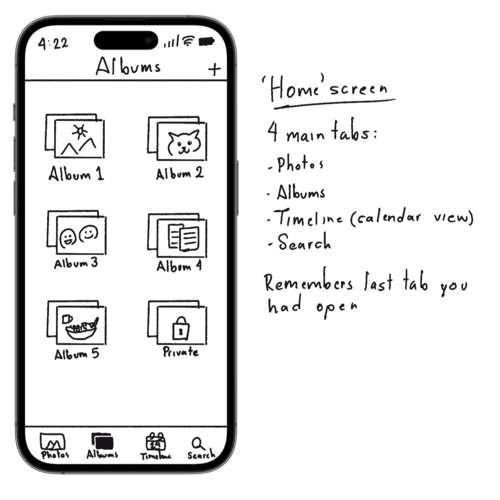 4:22
Albums +
Album 1
Album 2
Album 3
Album 4
Album 5
Private
Photos
Albums
Timeline
Search
'Home' screen
4 main tabs:
- Photos
- Albums
- Timeline (calendar view)
- Search
Remembers last tab you
had open